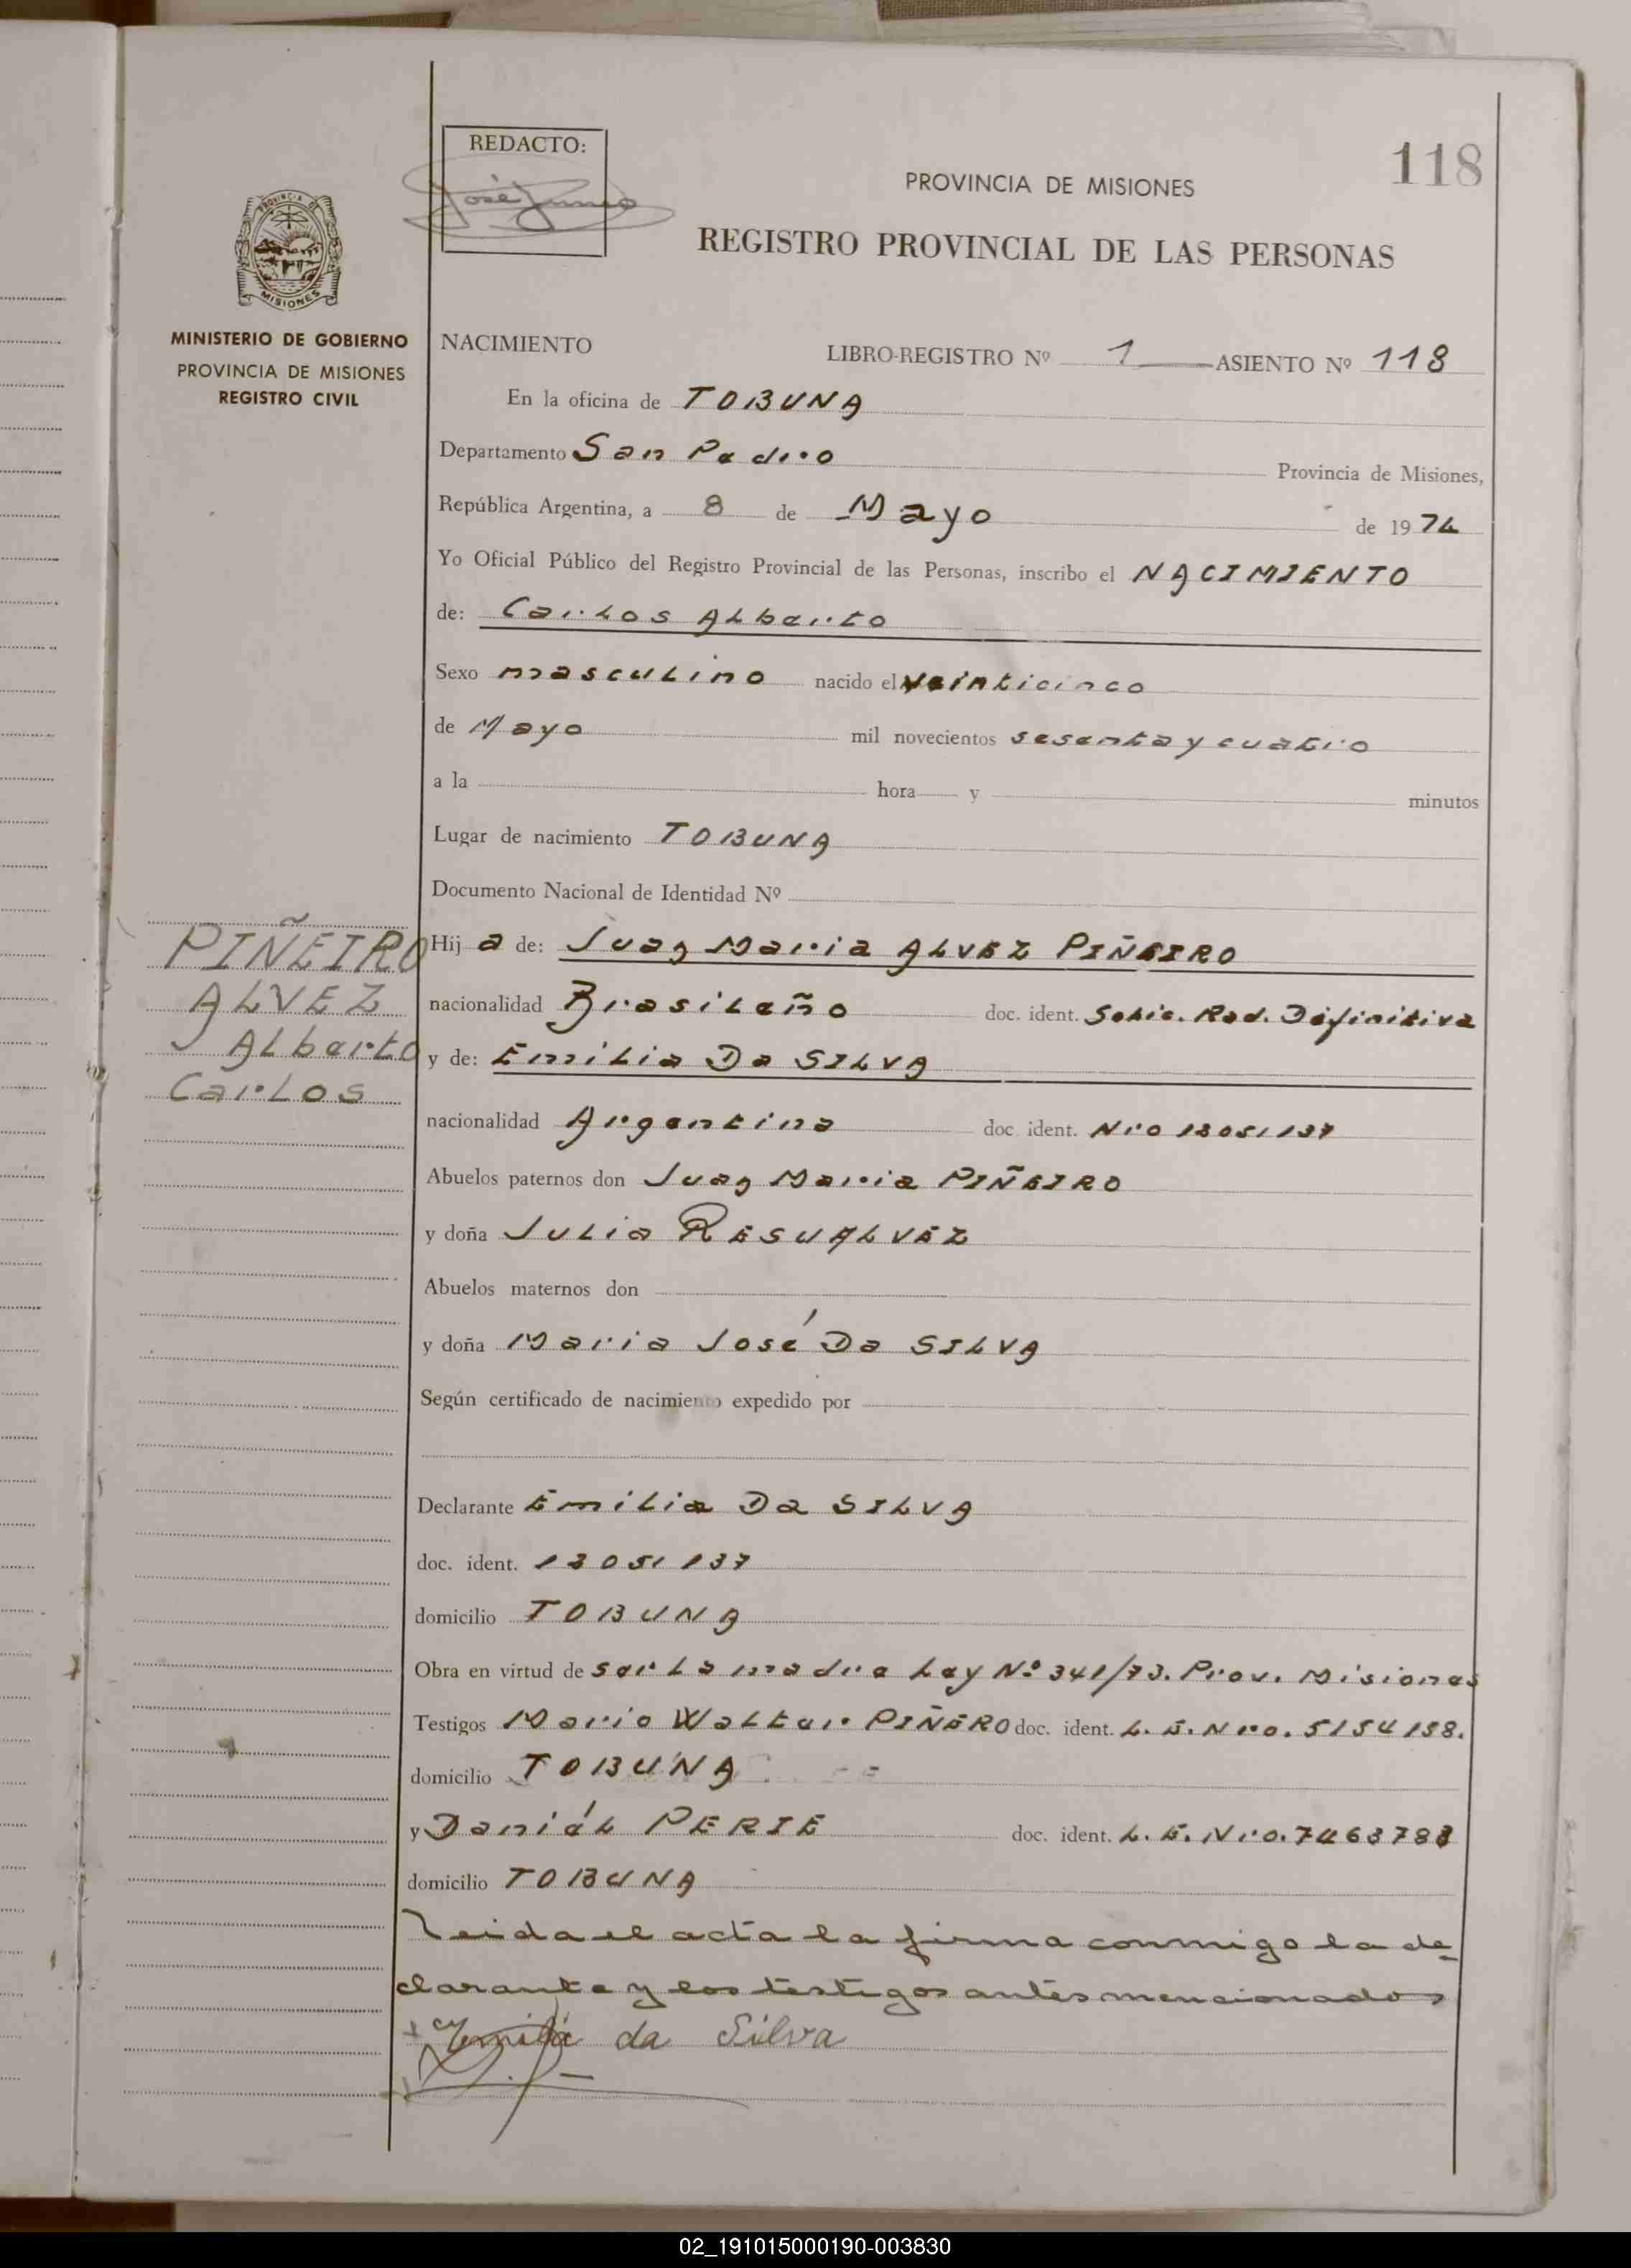 118
REDACTO:
PROVINCIA DE MISIONES
REGISTRO PROVINCIAL DE LAS PERSONAS
PROVINCIA DE
MISIONES
MINISTERIO DE GOBIERNO
PROVINCIA DE MISIONES
REGISTRO CIVIL
NACIMIENTO LIBRO-REGISTRO Nº 1 ASIENTO Nº 118
En la oficina de TOBUNA
Departamento San Pedro Provincia de Misiones,
República Argentina, a 8 de Mayo de 1974
Yo Oficial Público del Registro Provincial de las Personas, inscribo el NACIMIENTO
de: Carlos Alberto
Sexo masculino nacido el veinticinco
de Mayo mil novecientos sesenta y cuatro
a la hora y minutos
Lugar de nacimiento TOBUNA
Documento Nacional de Identidad Nº
PIÑEIRO
ALVEZ
Alberto
Carlos
Hij a de: Juan Maria ALVEZ PIÑEIRO
nacionalidad Brasileño doc. ident. Solic. Rad. Difinitiva
y de: Emilia Da SILVA
nacionalidad Argentina doc. ident. Nro 13051137
Abuelos paternos don Juan Maria PIÑEIRO
y doña Julia RESUALVEZ
Abuelos maternos don
y doña Maria José Da SILVA
Según certificado de nacimiento expedido por
Declarante Emilia Da SILVA
doc. ident. 13051137
domicilio TOBUNA
Obra en virtud de ser la madre Ley Nº 341/73. Prov. Misiones
Testigos Mario Walter PIÑERO doc. ident. L. E. Nro. 5154158.
domicilio TOBUNA
y Daniél PERIE doc. ident. L. E. Nro.
domicilio TOBUNA
Leida el acta la firma conmigo la de
clarante y los testigos antes mencionados
Emilia da Silva
02_191015000190-003830